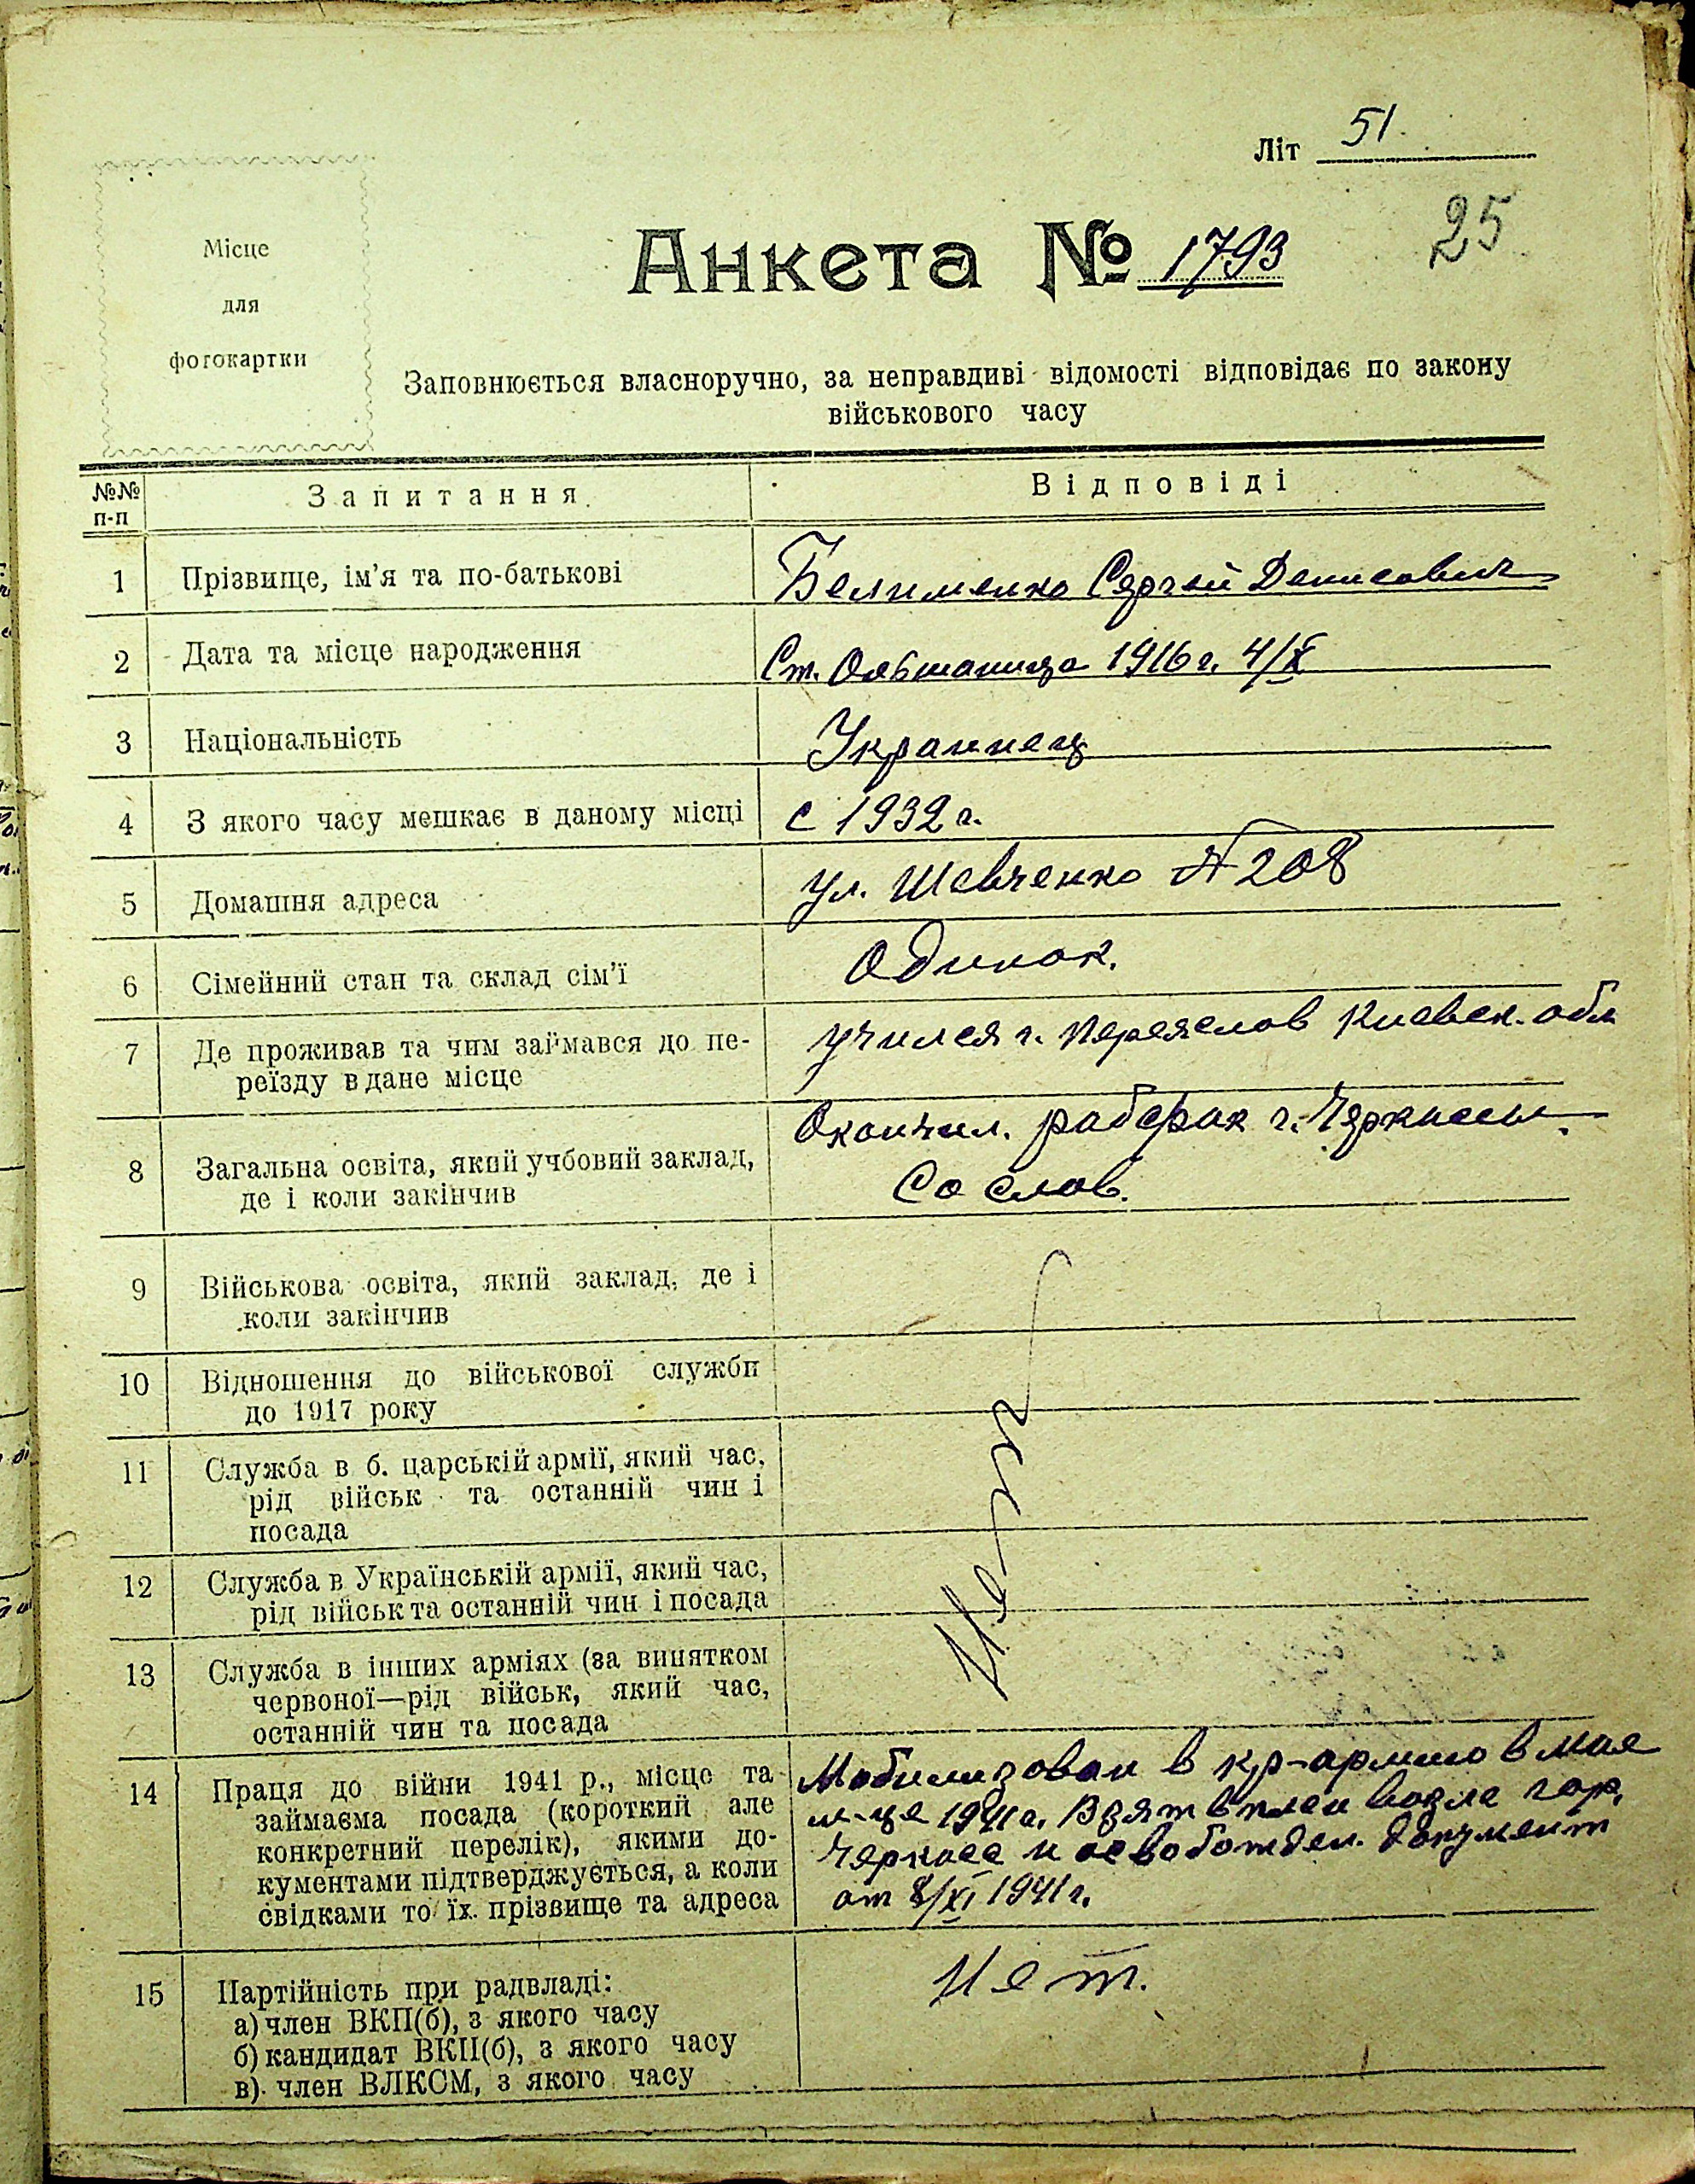 Літ 51.
25
Місце
для
фотокартки
Анкета № 1793
Заповнюється власноручно, за неправдиві відомості відповідає по закону
військового часу
№№ п-п
Запитання
Відповіді
1
Прізвище, ім’я та по-батькові
Белименко Сергей Денисович
2
Дата та місце народження
Ст. Ольшаница 1916 г. 4/X
3
Національність
Украинец
4
З якого часу мешкає в даному місці
с 1932 г.
5
Домашня адреса
ул. Шевченко № 208
6
Сімейний стан та склад сім’ї
Одинок.
7
Де проживав та чим займався до пе-
реїзду в дане місце
учился г. Переяслов Киевск. обл
8
Загальна освіта, який учбовий заклад,
де і коли закінчив
Окончил. рабфак г. Черкассы.
Со слов.
9
Військова освіта, який заклад, де і
коли закінчив
10
Відношення до військової служби
до 1917 року
11
Служба в б. царській армії, який час,
рід військ та останній чин і
посада
12
Служба в Українській армії, який час,
рід військ та останній чин і посада
13
Служба в інших арміях (за винятком
червоної—рід військ, який час,
останній чин та посада
Нет
14
Праця до війни 1941 р., місце та
займаєма посада (короткий але
конкретний перелік), якими до-
кументами підтверджується, а коли
свідками то їх прізвище та адреса
Мобилизован в кр-армию в мае
м-це 1941 г. Взят в плен возле гор.
Черкасс и освобожден. документ
от 8/XI 1941 г.
15
Партійність при радвладі:
а) член ВКП(б), з якого часу
б) кандидат ВКП(б), з якого часу
в) член ВЛКСМ, з якого часу
Нет.